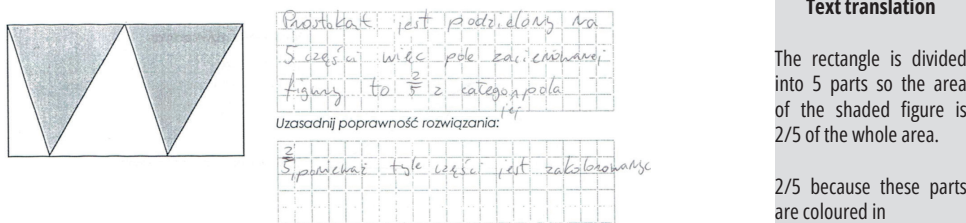 Prostokąt jest podzielony na
5 części więc pole zacienowanej
figury to 2/5 z całego pola
jej
Uzasadnij poprawność rozwiązania:
2/5, ponieważ tyle części jest zakolorowanyc
Text translation
The rectangle is divided
into 5 parts so the area
of the shaded figure is
2/5 of the whole area.
2/5 because these parts
are coloured in